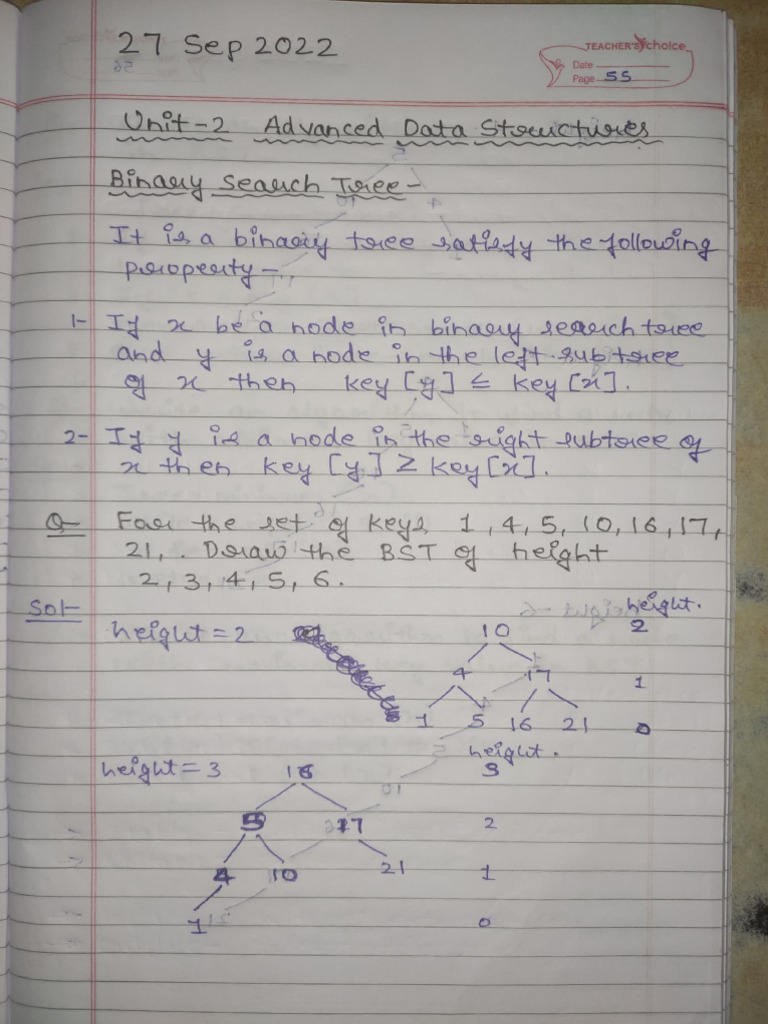 27 Sep 2022
TEACHER'S choice
Date
Page 55
Unit-2 Advanced Data Structures
Binary Search Tree-
It is a binary tree satisfy the following
property-
1- If x be a node in binary search tree
and y is a node in the left subtree
of x then key [y] ≤ key [x].
2- If y is a node in the right subtree of
x then key [y] ≥ key [x].
Q- For the set of keys 1, 4, 5, 10, 16, 17,
21, . Draw the BST of height
2, 3, 4, 5, 6.
Sol-
height.
height = 2 10 2
4 17 1
1 5 16 21 0
height.
height = 3 16 3
5 17 2
4 10 21 1
1 0